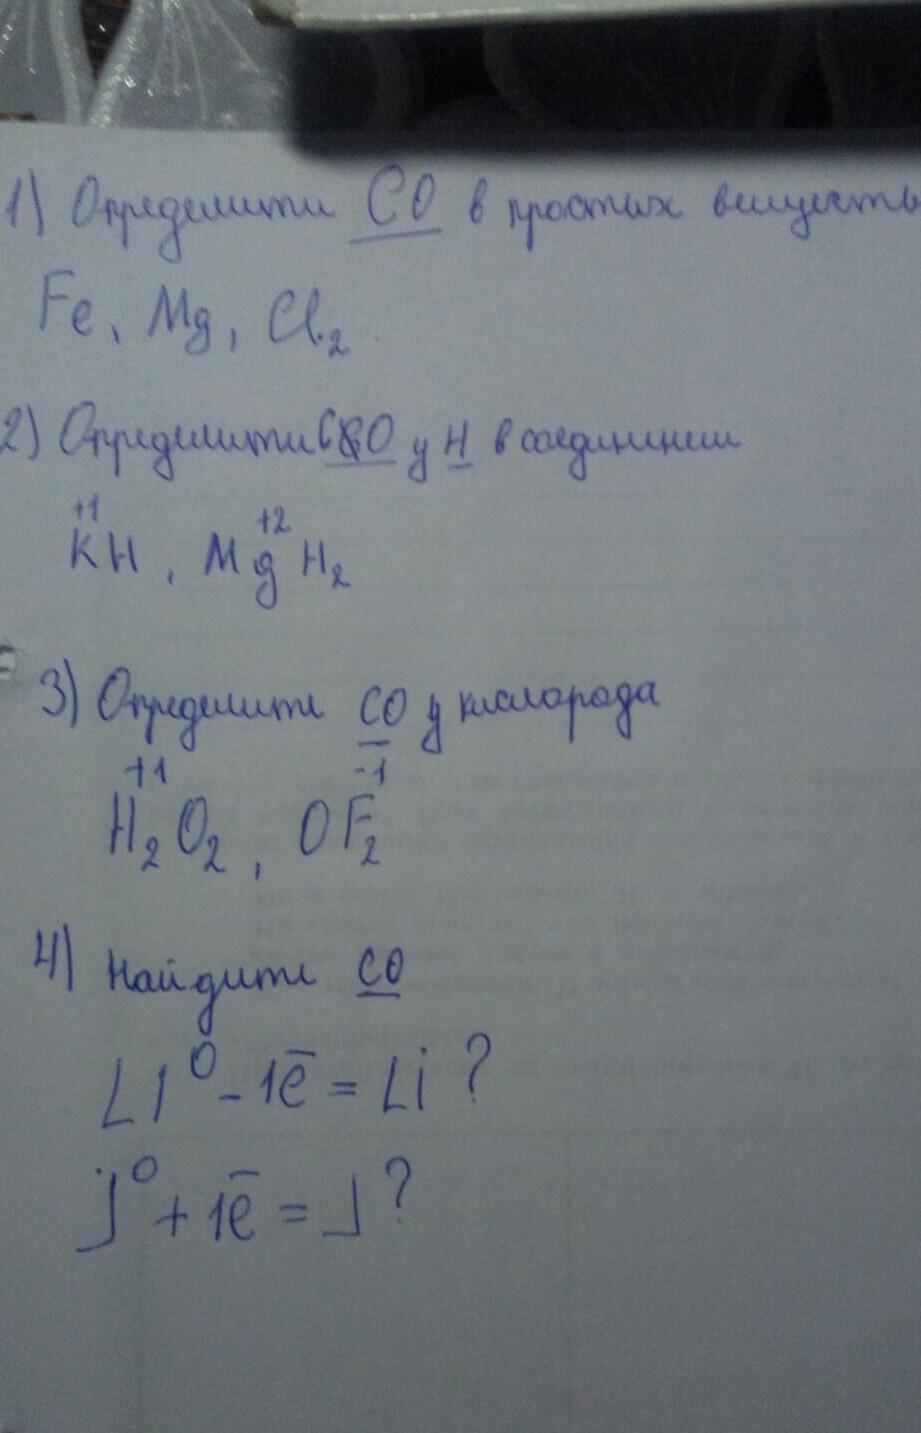 1) Определити СО в простых веществ
Fe, Mg, Cl2
2) Определити СО у Н в соединении
+1 +2
KH, MgH2
3) Определите СО у кислорода
+1 -1
H2O2, OF2
4) Найдите СО
Li⁰ - 1ē = Li ?
J⁰ + 1ē = J ?